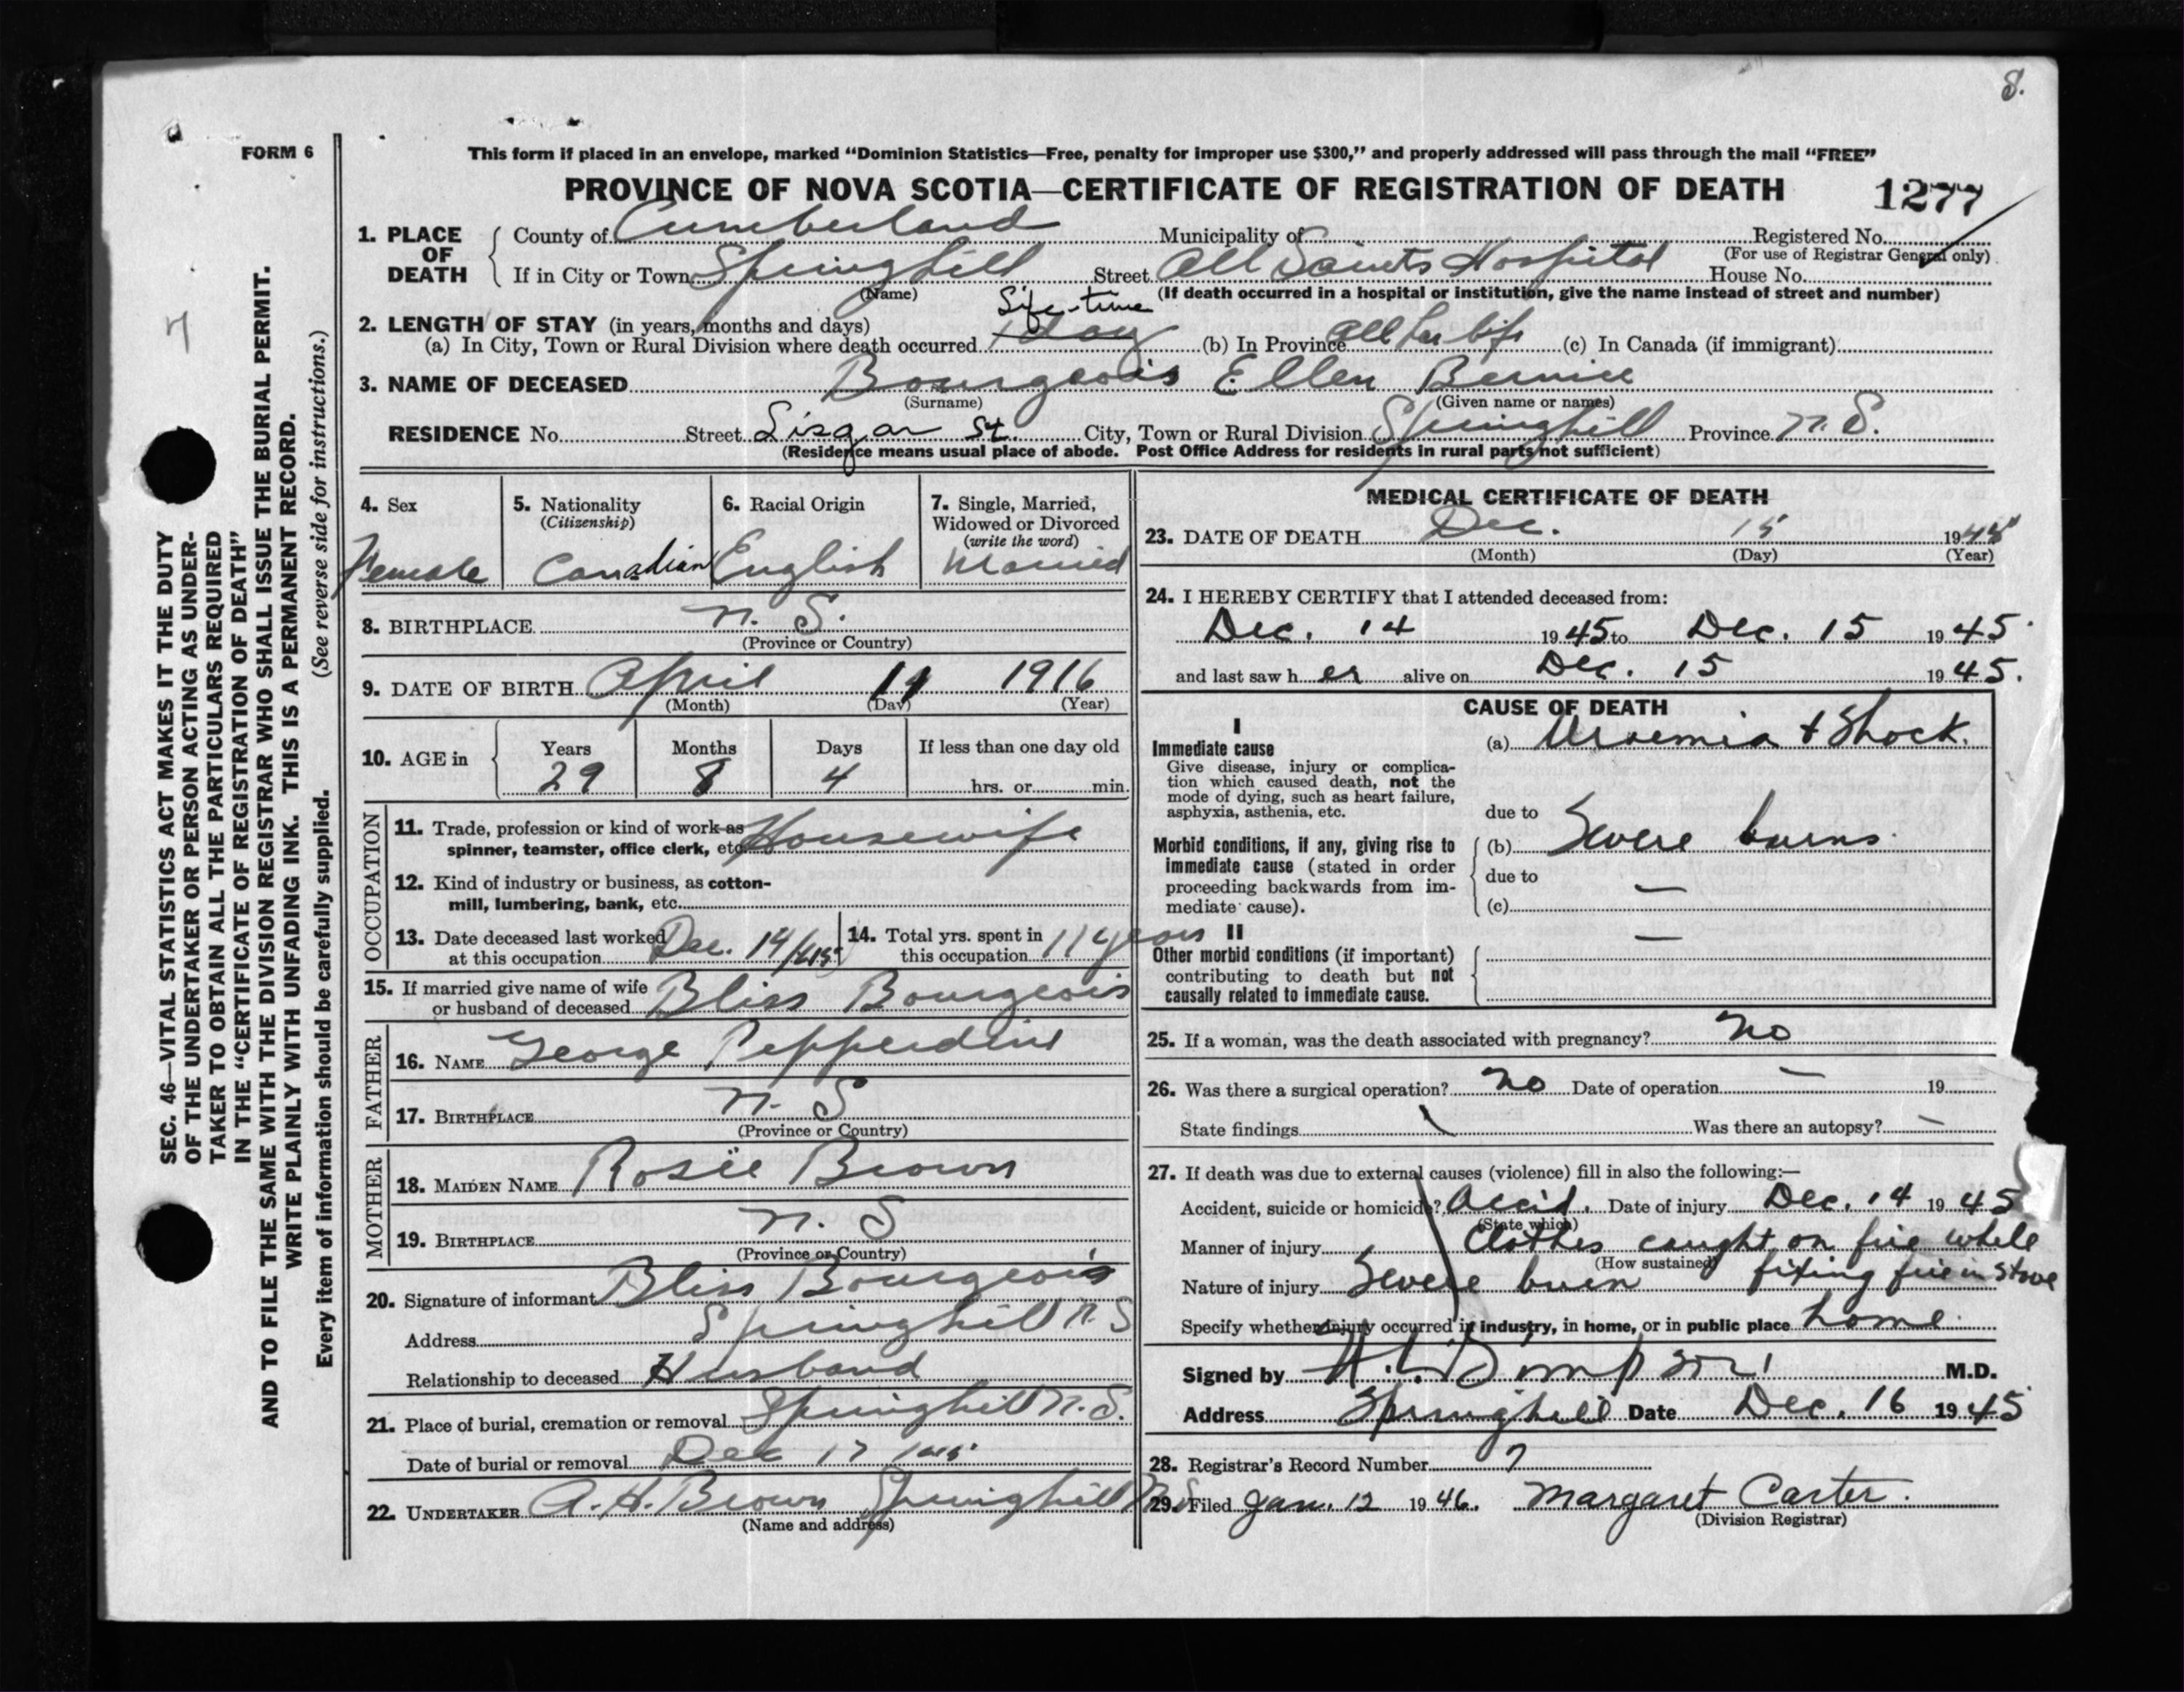 8.
FORM 6
This form if placed in an envelope, marked “Dominion Statistics—Free, penalty for improper use $300,” and properly addressed will pass through the mail “FREE”
PROVINCE OF NOVA SCOTIA—CERTIFICATE OF REGISTRATION OF DEATH 1277
1. PLACE OF DEATH
County of Cumberland Municipality of Registered No.
(For use of Registrar General only)
If in City or Town Springhill Street All Saints Hospital House No.
(Name) (If death occurred in a hospital or institution, give the name instead of street and number)
Life-time
2. LENGTH OF STAY (in years, months and days)
(a) In City, Town or Rural Division where death occurred 1 day (b) In Province all her life (c) In Canada (if immigrant)
3. NAME OF DECEASED Bourgeois Ellen Bernice
(Surname) (Given name or names)
RESIDENCE No. Street Lisgar St. City, Town or Rural Division Springhill Province N.S.
(Residence means usual place of abode. Post Office Address for residents in rural parts not sufficient)
4. Sex
Female
5. Nationality
(Citizenship)
Canadian
6. Racial Origin
English
7. Single, Married,
Widowed or Divorced
(write the word)
Married
8. BIRTHPLACE N. S.
(Province or Country)
9. DATE OF BIRTH April 11 1916
(Month) (Day) (Year)
10. AGE in Years Months Days If less than one day old
29 8 4 hrs. or min.
OCCUPATION
11. Trade, profession or kind of work as
spinner, teamster, office clerk, etc. Housewife
12. Kind of industry or business, as cotton-
mill, lumbering, bank, etc.
13. Date deceased last worked
at this occupation Dec. 14/45
14. Total yrs. spent in
this occupation 11 years
15. If married give name of wife
or husband of deceased Bliss Bourgeois
FATHER
16. NAME George Pepperdine
17. BIRTHPLACE N. S
(Province or Country)
MOTHER
18. MAIDEN NAME Rosie Brown
19. BIRTHPLACE N. S
(Province or Country)
20. Signature of informant Bliss Bourgeois
Address Springhill N.S
Relationship to deceased Husband
21. Place of burial, cremation or removal Springhill N.S.
Date of burial or removal Dec 17 1945
22. UNDERTAKER A. H. Brown Springhill N.S
(Name and address)
MEDICAL CERTIFICATE OF DEATH
23. DATE OF DEATH Dec. 15 1945
(Month) (Day) (Year)
24. I HEREBY CERTIFY that I attended deceased from:
Dec. 14 1945 to Dec. 15 1945
and last saw her alive on Dec. 15 1945.
CAUSE OF DEATH
I
Immediate cause
Give disease, injury or complica-
tion which caused death, not the
mode of dying, such as heart failure,
asphyxia, asthenia, etc.
(a) Uroemia + Shock.
due to
Morbid conditions, if any, giving rise to
immediate cause (stated in order
proceeding backwards from im-
mediate cause).
(b) Severe burns
due to —
(c)
II —
Other morbid conditions (if important)
contributing to death but not
causally related to immediate cause.
25. If a woman, was the death associated with pregnancy? No
26. Was there a surgical operation? No Date of operation — 19
State findings Was there an autopsy? —
27. If death was due to external causes (violence) fill in also the following:—
Accident, suicide or homicide? Accid. Date of injury Dec. 14 1945
(State which)
Manner of injury Clothes caught on fire while
(How sustained) fixing fire in stove
Nature of injury Severe burn
Specify whether injury occurred in industry, in home, or in public place home.
Signed by M.D.
Address Springhill Date Dec. 16 1945
28. Registrar's Record Number 7
29. Filed Jan. 12 1946. Margaret Carter.
(Division Registrar)
7
SEC. 46—VITAL STATISTICS ACT MAKES IT THE DUTY
OF THE UNDERTAKER OR PERSON ACTING AS UNDER-
TAKER TO OBTAIN ALL THE PARTICULARS REQUIRED
IN THE “CERTIFICATE OF REGISTRATION OF DEATH”
AND TO FILE THE SAME WITH THE DIVISION REGISTRAR WHO SHALL ISSUE THE BURIAL PERMIT.
WRITE PLAINLY WITH UNFADING INK. THIS IS A PERMANENT RECORD.
Every item of information should be carefully supplied. (See reverse side for instructions.)